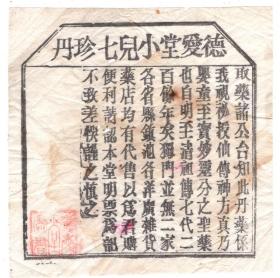 德愛堂小兒七珍丹
取藥諸公台知此丹藥係
我祖祕授仙傳神方真乃
嬰童至寶妙靈分之聖藥
也自明至清祖傳七代二
百餘年矣獨門並無二家
各省縣鎮泡各洋廣雜貨
藥店均有代售以為君購
便利請認本堂明票為記
不致差悞請之慎之